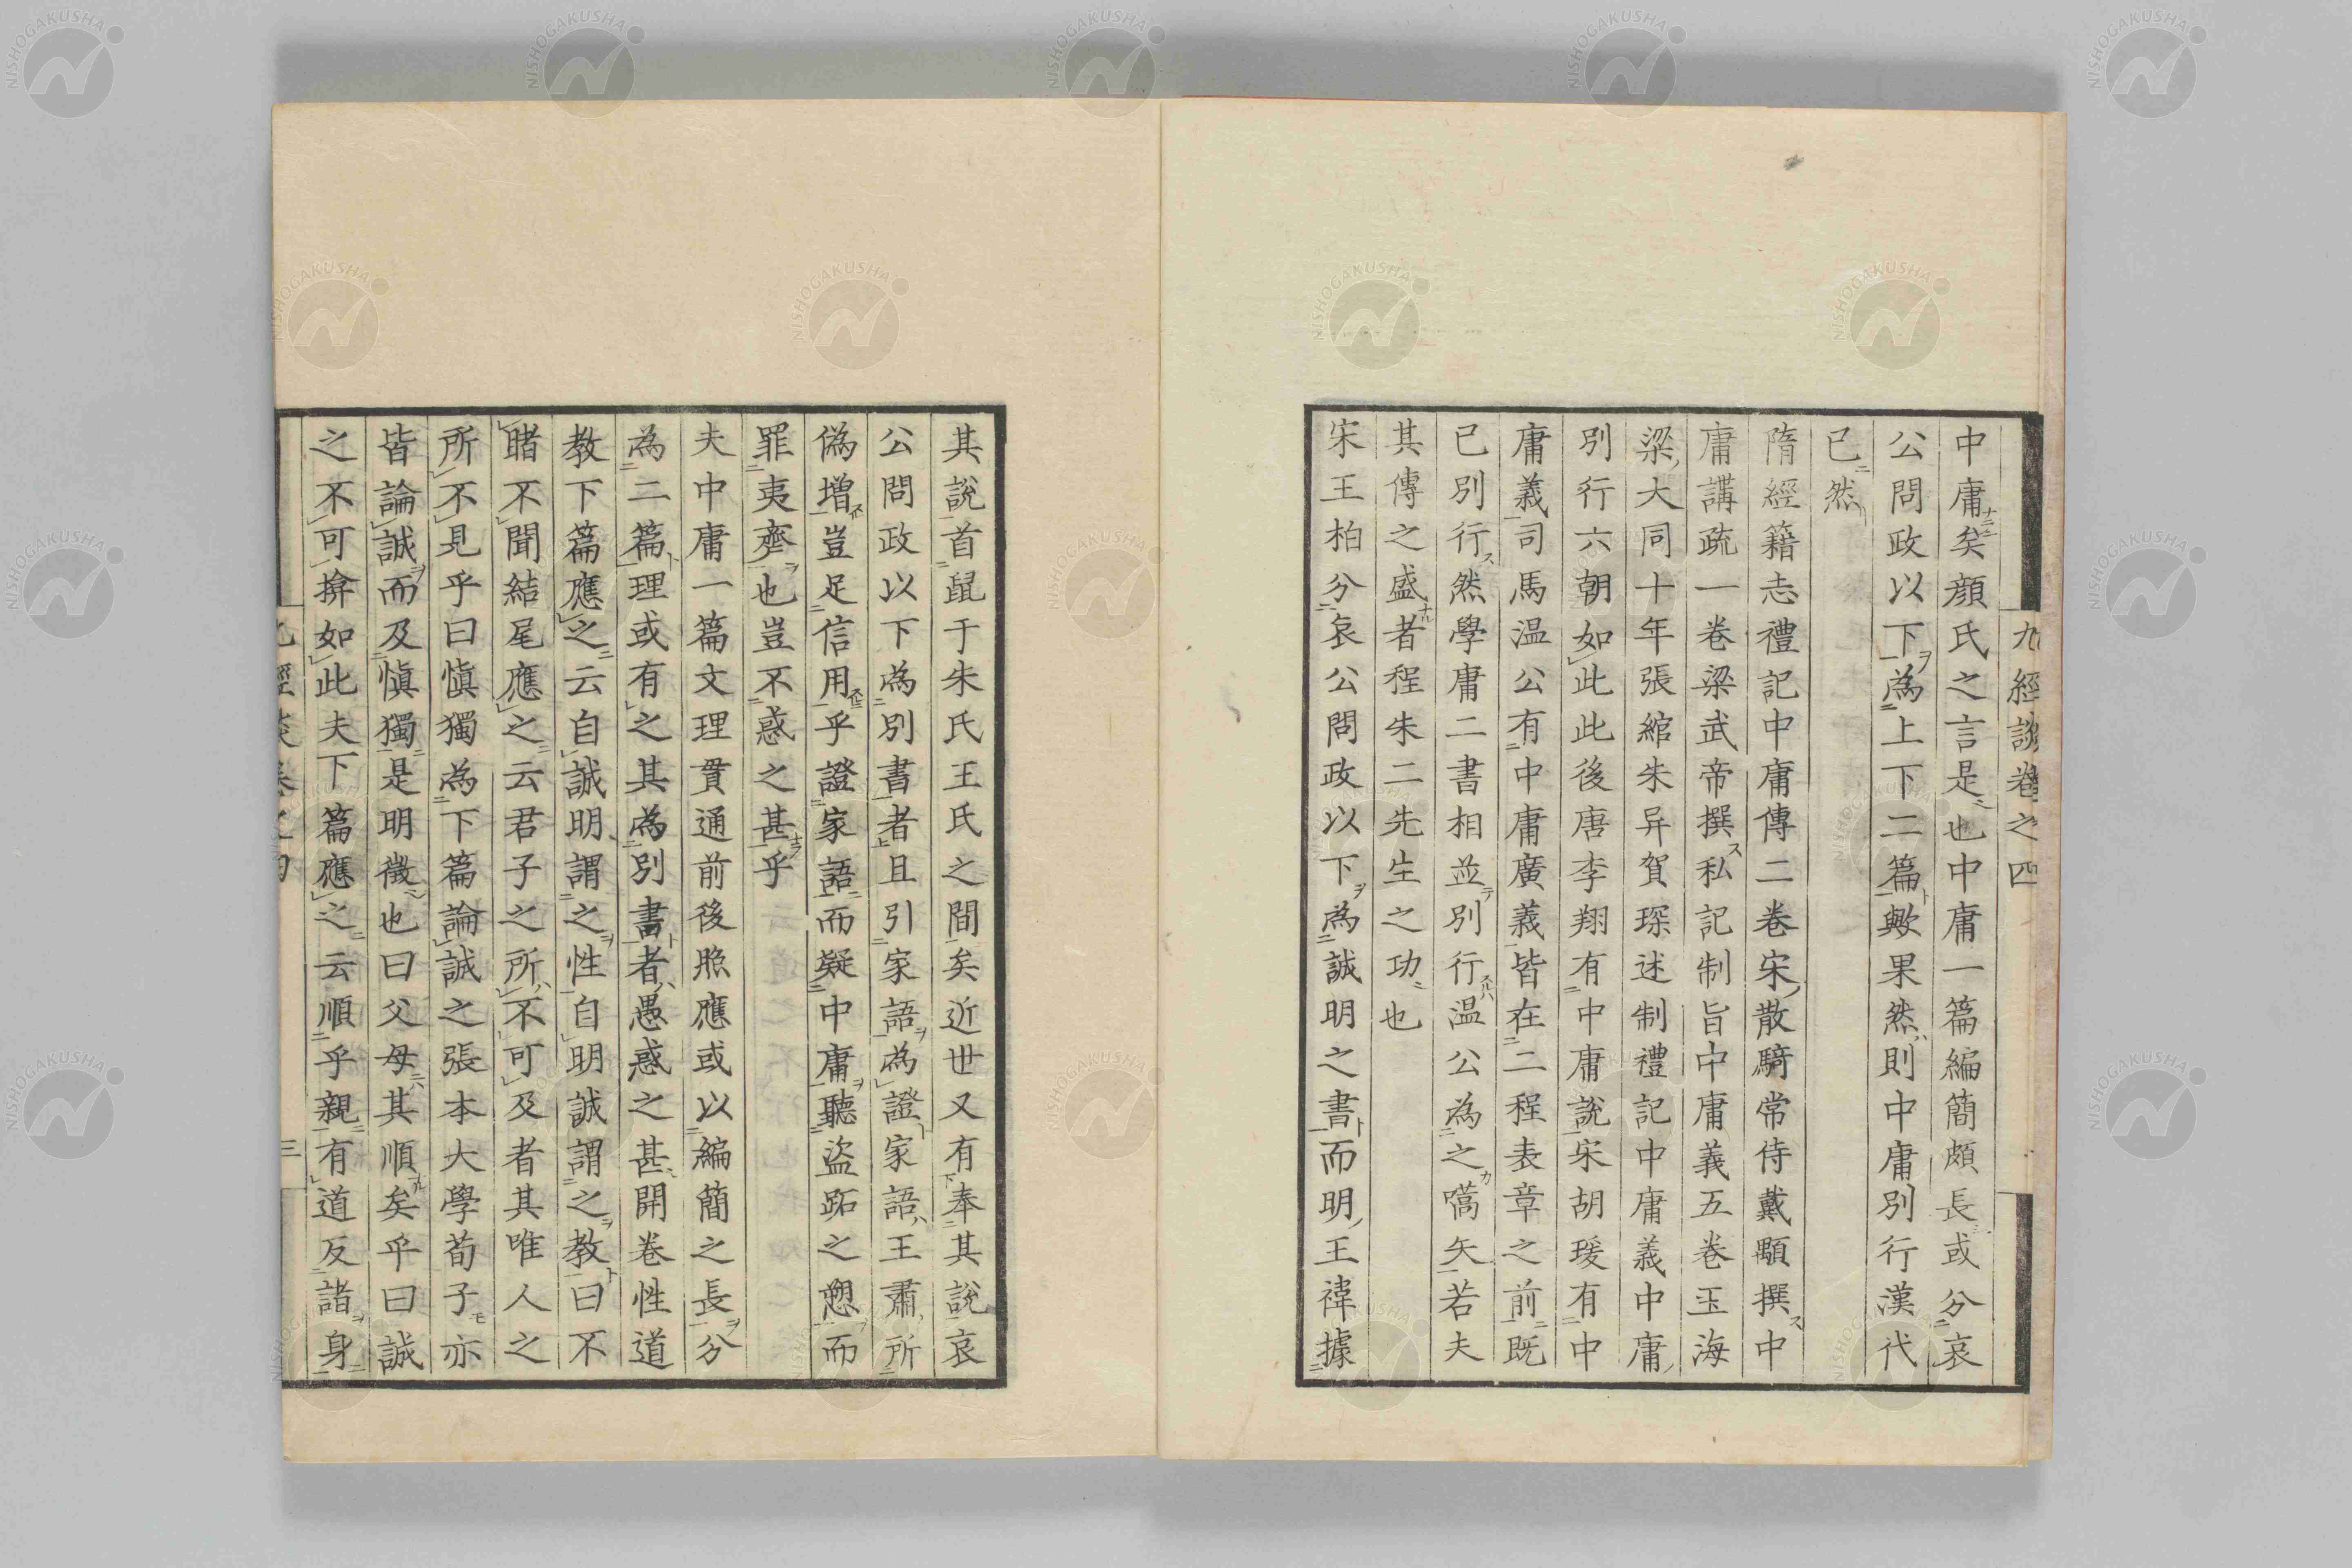 九經談卷之四
中庸矣顔氏之言是也中庸一篇編簡頗長或分哀
公問政以下為上下二篇歟果然則中庸別行漢代
已然
隋經籍志禮記中庸傳二卷宋散騎常侍戴顒撰中
庸講疏一卷梁武帝撰私記制旨中庸義五卷玉海
梁大同十年張綰朱异賀琛述制禮記中庸義中庸
別行六朝如此此後唐李翔有中庸說宋胡瑗有中
庸義司馬温公有中庸廣義皆在二程表章之前既
已別行然學庸二書相並別行温公為之嚆矢若夫
其傳之盛者程朱二先生之功也
宋王柏分哀公問政以下為誠明之書而明王禕據
其說首鼠于朱氏王氏之間矣近世又有奉其說哀
公問政以下為別書者且引家語為證家語王肅所
偽增豈足信用乎證家語而疑中庸聽盜跖之愬而
罪夷齊也豈不惑之甚乎
夫中庸一篇文理貫通前後照應或以編簡之長分
為二篇理或有之其為別書者愚惑之甚開卷性道
教下篇應之云自誠明謂之性自明誠謂之教曰不
睹不聞結尾應之云君子之所不可及者其唯人之
所不見乎曰愼獨為下篇論誠之張本大學荀子亦
皆論誠而及愼獨是明徵也曰父母其順矣乎曰誠
之不可揜如此夫下篇應之云順乎親有道反諸身
九經談卷之四
三
NISHOGAKUSHA